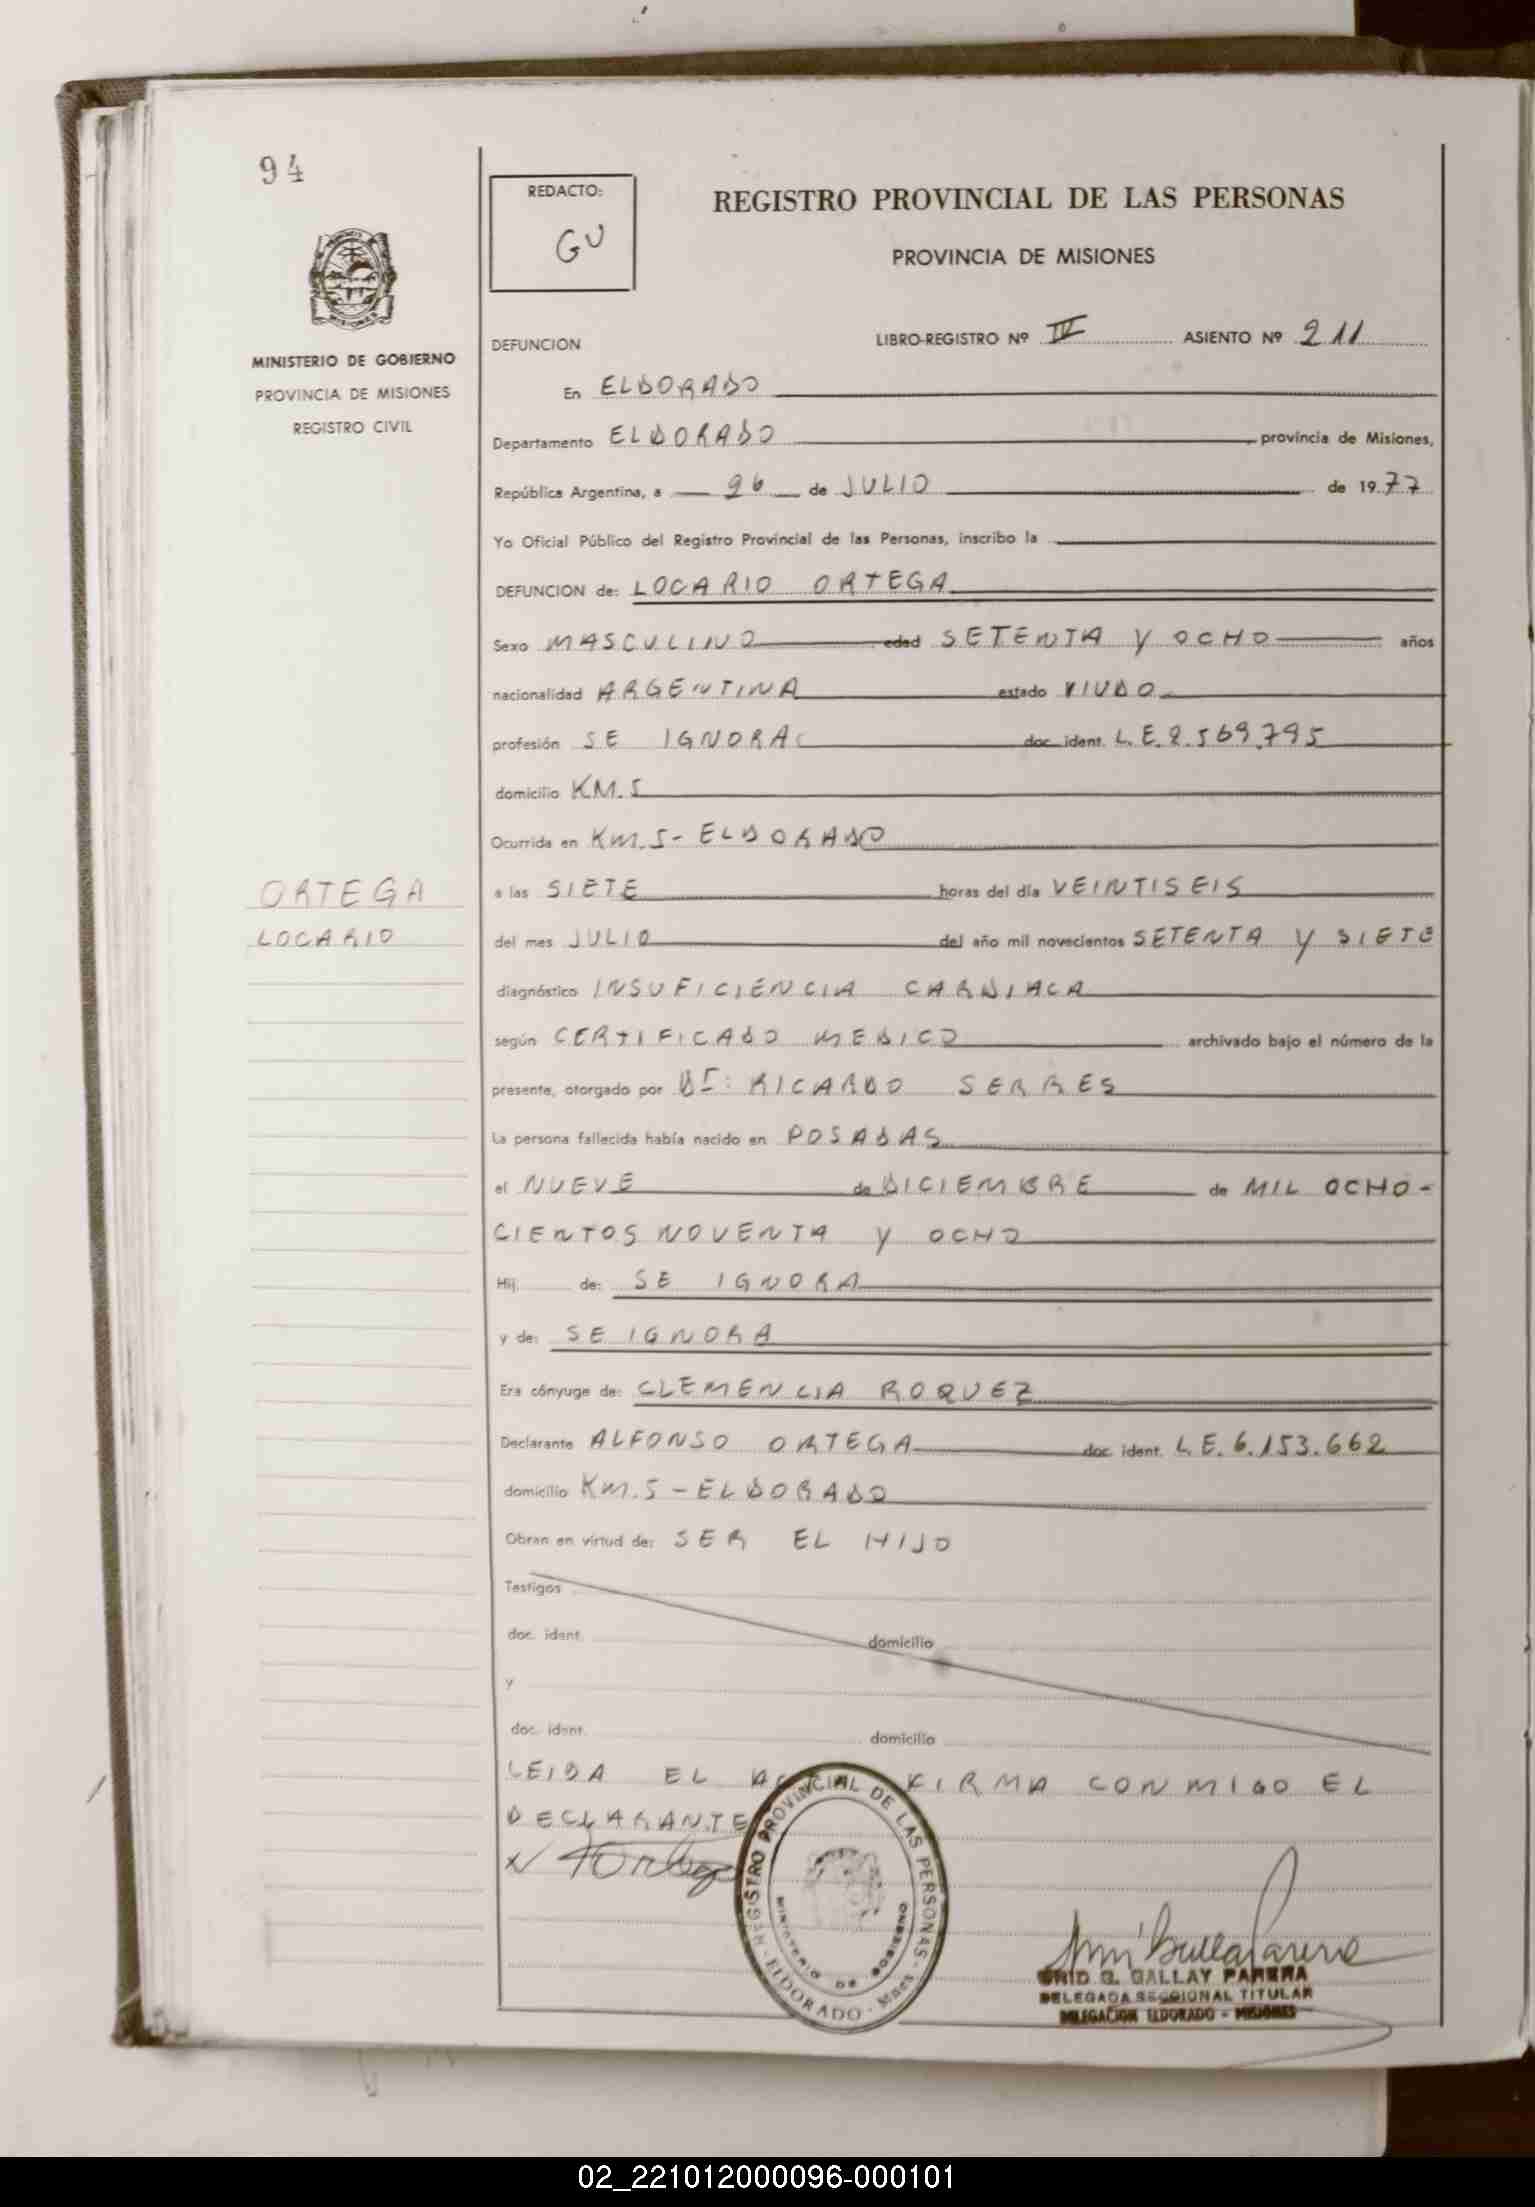 94
REDACTO:
GU
REGISTRO PROVINCIAL DE LAS PERSONAS
PROVINCIA DE MISIONES
MISIONES
MINISTERIO DE GOBIERNO
PROVINCIA DE MISIONES
REGISTRO CIVIL
DEFUNCION LIBRO-REGISTRO Nº IV ASIENTO Nº 211
En ELDORADO
Departamento ELDORADO provincia de Misiones,
República Argentina, a 26 de JULIO de 1977
Yo Oficial Público del Registro Provincial de las Personas, inscribo la
DEFUNCION de: LOCARIO ORTEGA
Sexo MASCULINO edad SETENTA Y OCHO años
nacionalidad ARGENTINA estado VIUDO
profesión SE IGNORA doc. ident. L.E. 2.569.795
domicilio KM. 5
Ocurrida en KM. 5 - ELDORADO
a las SIETE horas del día VEINTISEIS
ORTEGA
LOCARIO
del mes JULIO del año mil novecientos SETENTA Y SIETE
diagnóstico INSUFICIENCIA CARDIACA
según CERTIFICADO MEDICO archivado bajo el número de la
presente, otorgado por Dr: RICARDO SERRES
La persona fallecida había nacido en POSADAS
el NUEVE de DICIEMBRE de MIL OCHO-
CIENTOS NOVENTA Y OCHO
Hij de: SE IGNORA
y de: SE IGNORA
Era cónyuge de: CLEMENCIA ROQUEZ
Declarante ALFONSO ORTEGA doc. ident. L.E. 6.153.662
domicilio KM. 5 - ELDORADO
Obran en virtud de: SER EL HIJO
Testigos
doc. ident. domicilio
y
doc. ident. domicilio
LEIDA EL FIRMA CONMIGO EL
DECLARANTE
REGISTRO PROVINCIAL DE LAS PERSONAS
MINISTERIO DE GOBIERNO
ELDORADO - Mnes
G. GALLAY PARERA
DELEGADA SECCIONAL TITULAR
DELEGACION ELDORADO - MISIONES
02_221012000096-000101